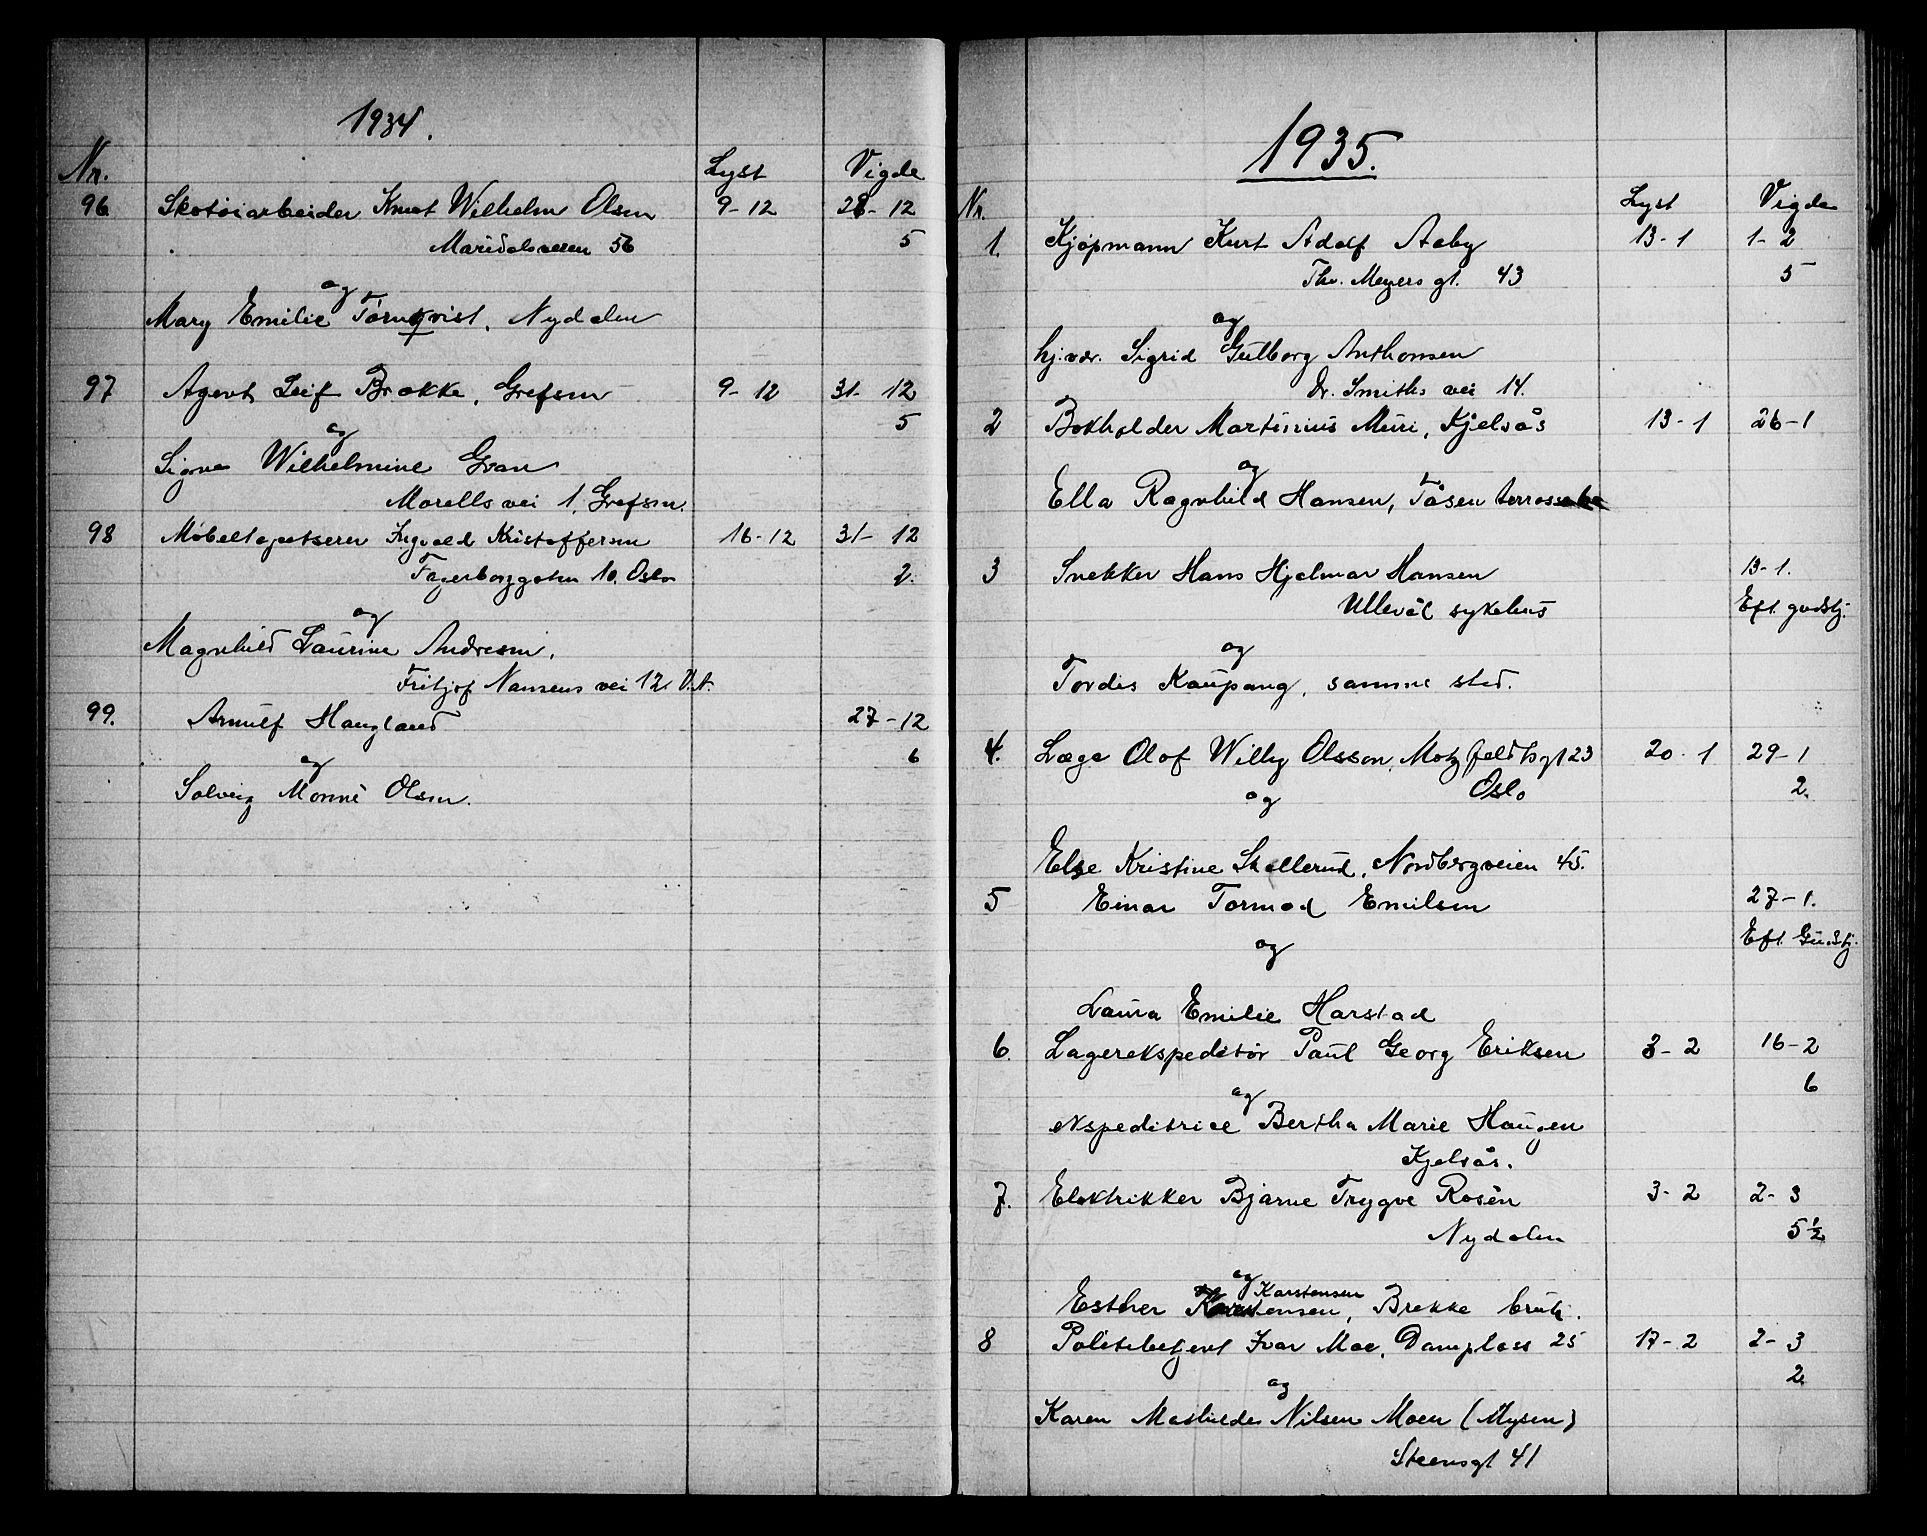 1934.
Nr. Lyst Vigde
96 Skotøiarbeider Knut Wilhelm Olsen 9-12 28-12
Maridalsveien 56 5
og
Mary Emilie Törnqvist, Nydalen
97 Agent Leif Brække, Grefsen 9-12 31-12
og 5
Signe Wilhelmine Gran
Morells vei 1, Grefsen.
98 Møbeltapetserer Ingvald Kristoffersen 16-12 31-12
Fagerborggaten 10, Oslo 2.
og
Magnhild Laurine Andresen,
Fritjof Nansens vei 12. V.A.
99. Arnulf Haugland 27-12
og 6
Solveig Monné Olsen.
1935.
Nr. Lyst Vigde
1. Kjøpmann Kurt Adolf Aaby 13-1 1-2
Thv. Meyers gt. 43 5
og
hj.vær. Sigrid Gulborg Anthonsen
Dr. Smiths vei 14.
2 Bokholder Martinius Muri, Kjelsås 13-1 26-1
og
Ella Ragnhild Hansen, Tåsen terrasse
3 Snekker Hans Hjalmar Hansen 13-1.
Ullevål sykehus Eft. gudstj.
og
Tordis Kaupang, samme sted.
4. Læge Olof Willy Olsson, Motzfeldtsgt 23 20-1 29-1
og Oslo 2.
Else Kristine Skellerud, Nordbergveien 45.
5 Einar Tormod Emilsen 27-1.
og Eft. Gudstj.
Laura Emilie Harstad
6. Lagerekspeditør Paul Georg Eriksen 3-2 16-2
og 6
ekspeditrice Bertha Marie Haugen
Kjelsås.
7. Elektrikker Bjarne Trygve Rosén 3-2 2-3
Nydalen 5½
og Karstensen
Esther Karstensen, Brekke bruk.
8 Politibetjent Ivar Moe, Damplass 25 17-2 2-3
og 2
Karen Mathilde Nilsen Moen (Mysen)
Steensgt 41